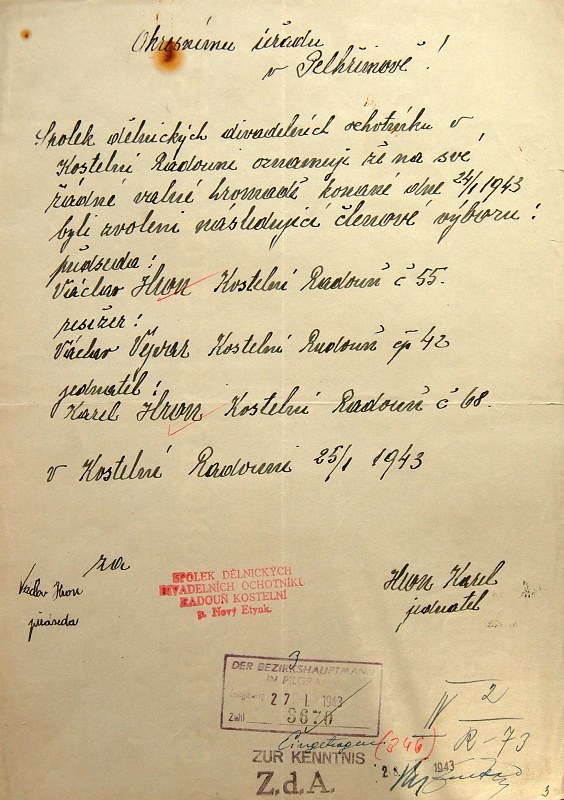 Okresnímu úřadu
v Pelhřimově!
Spolek dělnických divadelních ochotníku v
Kostelní Radouni oznamuji že na své
řádné valné hromadě konané dne 24/1 1943
byli zvoleni následující členové výboru:
předseda:
Václav Hron Kostelní Radouň č 55.
resižer:
Václav Vejvar Kostelní Radouň čp 42
jednatel:
Karel Hron Kostelní Radouň č 68.
v Kostelní Radouni 25/1 1943
za
Václav Hron
předseda
SPOLEK DĚLNICKÝCH
DIVADELNÍCH OCHOTNÍKU
RADOUŇ KOSTELNÍ
p. Nový Etynk.
Hron Karel
jednatel
3
DER BEZIRKSHAUPTMANN
IN PILGRAMS
Eingelangt 27 I. 1943
Zahl 3670
Eingetragen (346)
IV 2
R-73
ZUR KENNTNIS
1943
Z.d.A.
3